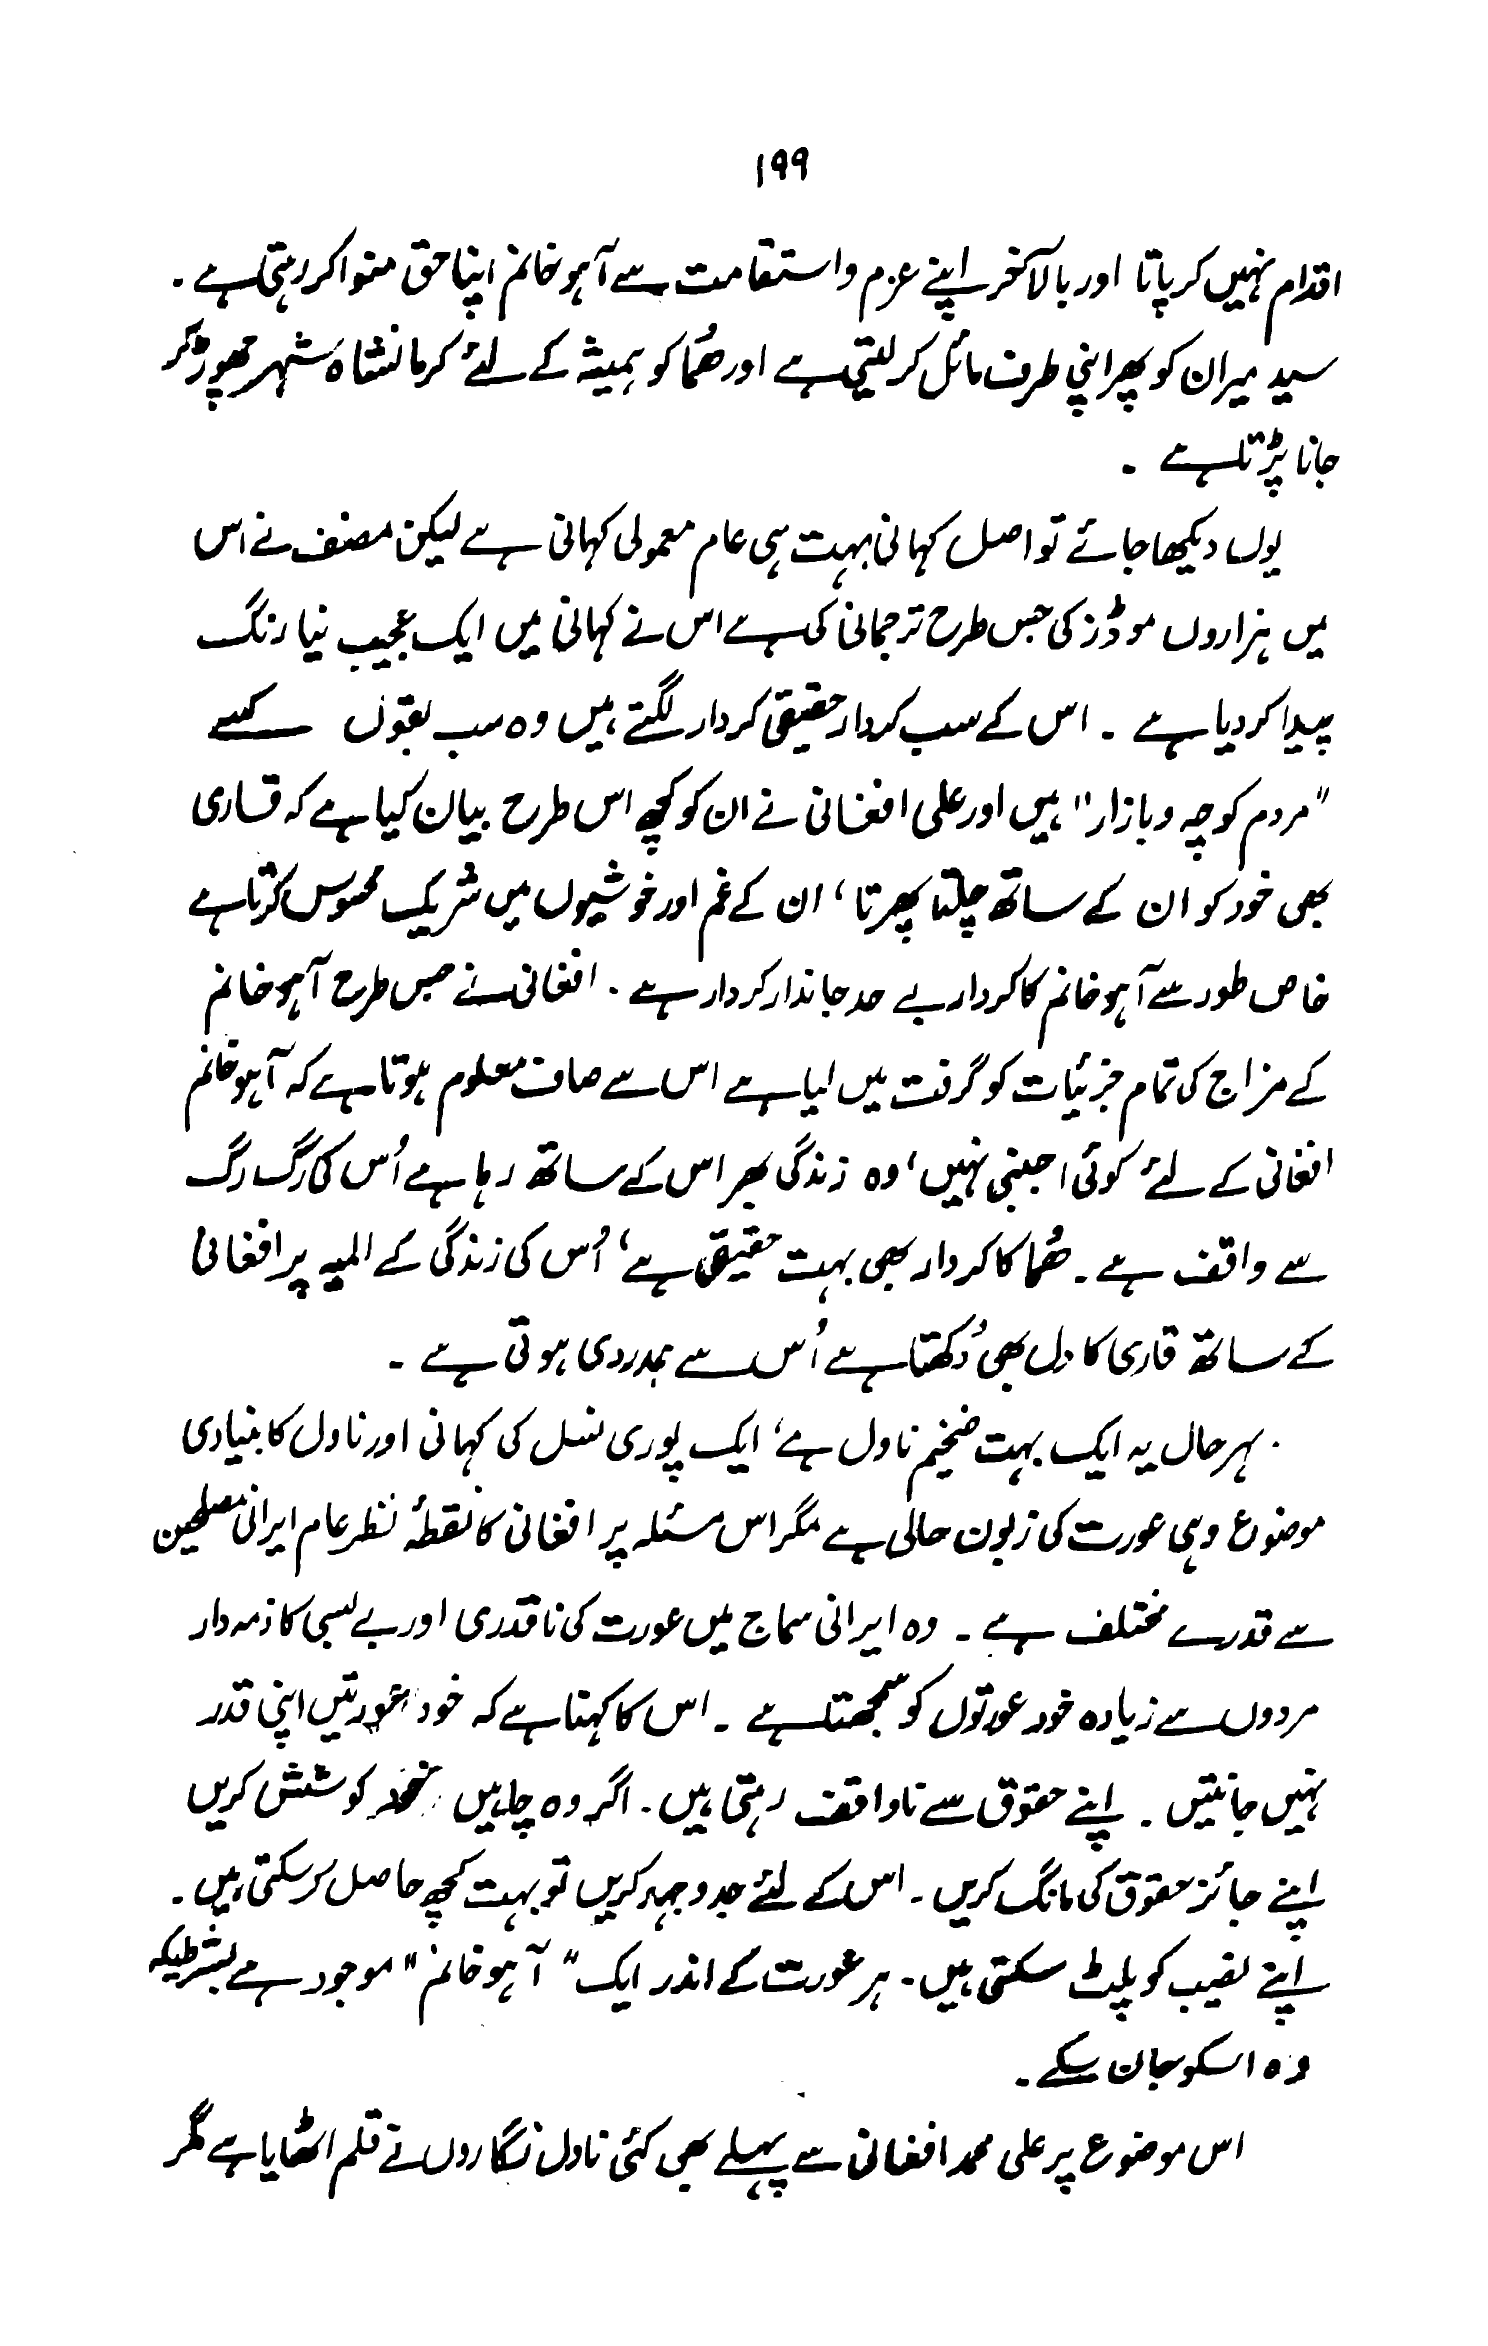 ۱۹۹
اقدام نہیں کر پاتا اور بالآخر اپنے عزم و استقامت سے آہو خانم اپنا حق منوا کر رہتی ہے ۔
سید میران کو پھر اپنی طرف مائل کر لیتی ہے اور ھُما کو ہمیشہ کے لئے کرمانشاہ شہر چھوڑ کر
جانا پڑتا ہے ۔
یوں دیکھا جائے تو اصل کہانی بہت ہی عام معمولی کہانی ہے لیکن مصنف نے اس
میں ہزاروں موڈز کی جس طرح ترجمانی کی ہے اس نے کہانی میں ایک عجیب نیا رنگ
پیدا کر دیا ہے ۔ اس کے سب کردار حقیقی کردار لگتے ہیں وہ سب بقول کسے
"مردم کوچہ و بازار" ہیں اور علی افغانی نے ان کو کچھ اس طرح بیان کیا ہے کہ قاری
بھی خود کو ان کے ساتھ چلتا پھرتا، ان کے غم اور خوشیوں میں شریک محسوس کرتا ہے
خاص طور سے آہو خانم کا کردار بے حد جاندار کردار ہے ۔ افغانی نے جس طرح آہو خانم
کے مزاج کی تمام جزئیات کو گرفت میں لیا ہے اس سے صاف معلوم ہوتا ہے کہ آہو خانم
افغانی کے لئے کوئی اجنبی نہیں، وہ زندگی بھر اس کے ساتھ رہا ہے اُس کی رگ رگ
سے واقف ہے ۔ ھُما کا کردار بھی بہت حقیقی ہے، اُس کی زندگی کے المیہ پر افغانی
کے ساتھ قاری کا دل بھی دُکھتا ہے اُس سے ہمدردی ہوتی ہے ۔
بہر حال یہ ایک بہت ضخیم ناول ہے، ایک پوری نسل کی کہانی اور ناول کا بنیادی
موضوع وہی عورت کی زبون حالی ہے مگر اس مسئلہ پر افغانی کا نقطۂ نظر عام ایرانی مصلحین
سے قدرے مختلف ہے ۔ وہ ایرانی سماج میں عورت کی ناقدری اور بے بسی کا ذمہ دار
مردوں سے زیادہ خود عورتوں کو سمجھتا ہے ۔ اس کا کہنا ہے کہ خود عورتیں اپنی قدر
نہیں جانتیں ۔ اپنے حقوق سے ناواقف رہتی ہیں ۔ اگر وہ چاہیں خود کوشش کریں
اپنے جائز حقوق کی مانگ کریں ۔ اس کے لئے جدوجہد کریں تو بہت کچھ حاصل کر سکتی ہیں ۔
اپنے نصیب کو پلٹ سکتی ہیں ۔ ہر عورت کے اندر ایک "آہو خانم" موجود ہے بشرطیکہ
وہ اسکو جان سکے ۔
اس موضوع پر علی محمد افغانی سے پہلے بھی کئی ناول نگاروں نے قلم اٹھایا ہے مگر